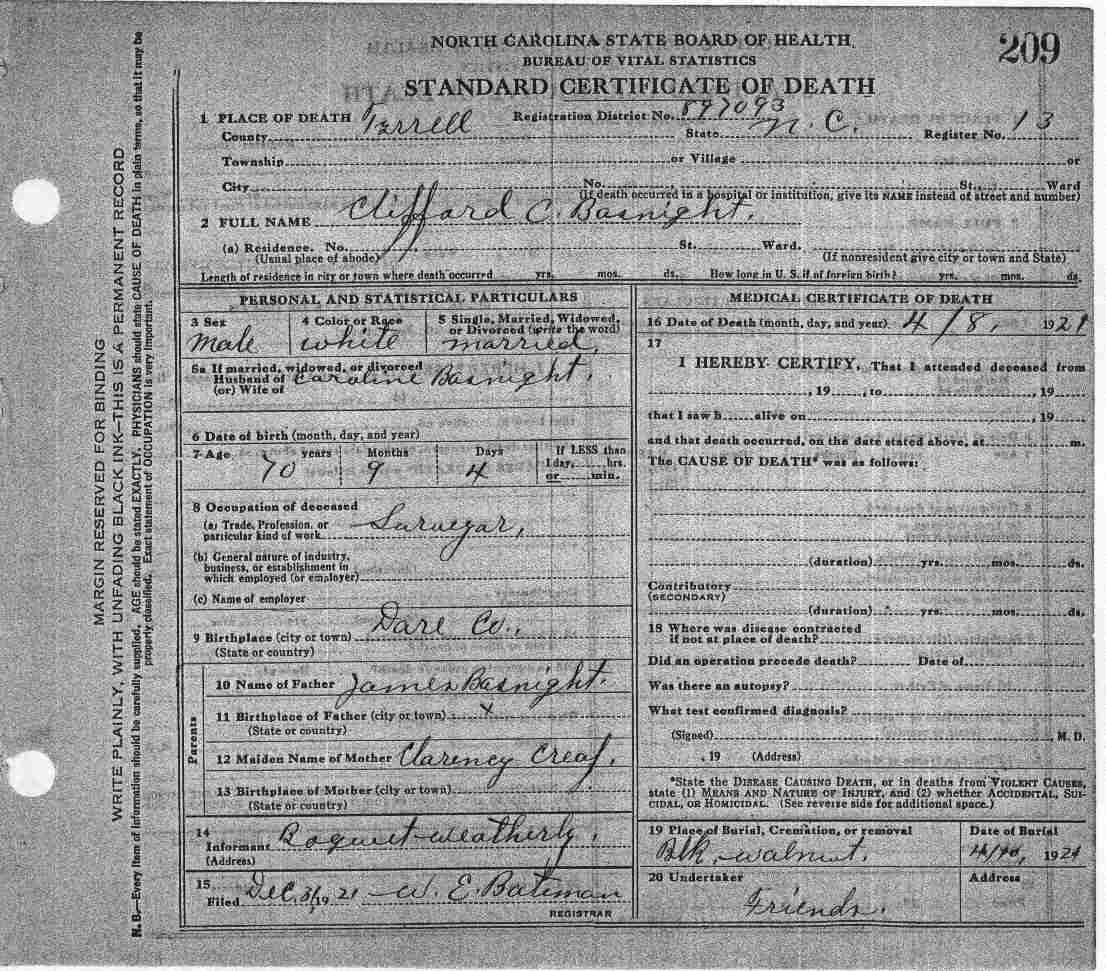 209
NORTH CAROLINA STATE BOARD OF HEALTH
BUREAU OF VITAL STATISTICS
STANDARD CERTIFICATE OF DEATH
1 PLACE OF DEATH Registration District No. 897093
County Tyrrell State N. C. Register No. 13
Township or Village or
City No. St. Ward
(If death occurred in a hospital or institution, give its NAME instead of street and number)
2 FULL NAME Clifford C. Basnight.
(a) Residence. No. St. Ward.
(Usual place of abode) (If nonresident give city or town and State)
Length of residence in city or town where death occurred yrs. mos. ds. How long in U. S. if of foreign birth? yrs. mos. ds.
PERSONAL AND STATISTICAL PARTICULARS
3 Sex 4 Color or Race 5 Single, Married, Widowed,
or Divorced (write the word)
Male white married.
5a If married, widowed, or divorced
Husband of Caroline Basnight.
(or) Wife of
6 Date of birth (month, day, and year)
7 Age years Months Days If LESS than
1 day, hrs.
70 9 4 or min.
8 Occupation of deceased
(a) Trade, Profession, or
particular kind of work
(b) General nature of industry,
business, or establishment in
which employed (or employer)
(c) Name of employer
9 Birthplace (city or town) Dare Co.,
(State or country)
Parents
10 Name of Father James Basnight.
11 Birthplace of Father (city or town) x
(State or country)
12 Maiden Name of Mother Clarency
13 Birthplace of Mother (city or town)
(State or country)
14
Informant Weatherly.
(Address)
15
Filed Dec. 31, 19 21 W. E. Bateman
REGISTRAR
MEDICAL CERTIFICATE OF DEATH
16 Date of Death (month, day, and year) 4/8, 1921
17
I HEREBY CERTIFY, That I attended deceased from
, 19 , to , 19
that I saw h alive on , 19
and that death occurred, on the date stated above, at m.
The CAUSE OF DEATH* was as follows:
(duration) yrs. mos. ds.
Contributory
(SECONDARY)
(duration) yrs. mos. ds.
18 Where was disease contracted
if not at place of death?
Did an operation precede death? Date of
Was there an autopsy?
What test confirmed diagnosis?
(Signed) , M. D.
, 19 (Address)
*State the DISEASE CAUSING DEATH, or in deaths from VIOLENT CAUSES,
state (1) MEANS AND NATURE OF INJURY, and (2) whether ACCIDENTAL, SUI-
CIDAL, OR HOMICIDAL. (See reverse side for additional space.)
19 Place of Burial, Cremation, or removal Date of Burial
Blk. walnut. 1921
20 Undertaker Address
Friends.
MARGIN RESERVED FOR BINDING
WRITE PLAINLY, WITH UNFADING BLACK INK—THIS IS A PERMANENT RECORD
N. B.—Every item of information should be carefully supplied. AGE should be stated EXACTLY. PHYSICIANS should state CAUSE OF DEATH in plain terms, so that it may be
properly classified. Exact statement of OCCUPATION is very important.